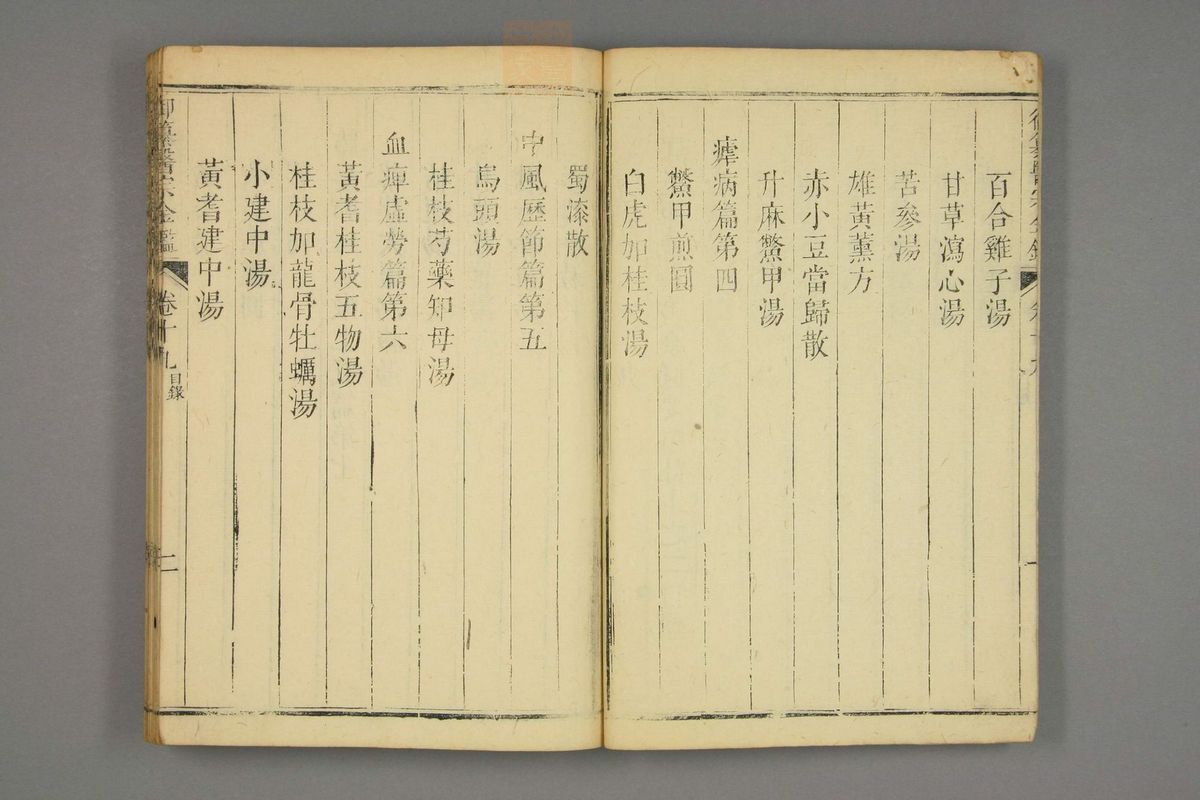 百合雞子湯
甘草瀉心湯
苦參湯
雄黃薰方
赤小豆當歸散
升麻鱉甲湯
瘧病篇第四
鱉甲煎圓
白虎加桂枝湯
蜀漆散
中風歷節篇第五
烏頭湯
桂枝芍藥知母湯
血痺虛勞篇第六
黃耆桂枝五物湯
桂枝加龍骨牡蠣湯
小建中湯
黃耆建中湯
御纂醫宗金鑑
卷十九
目錄
二